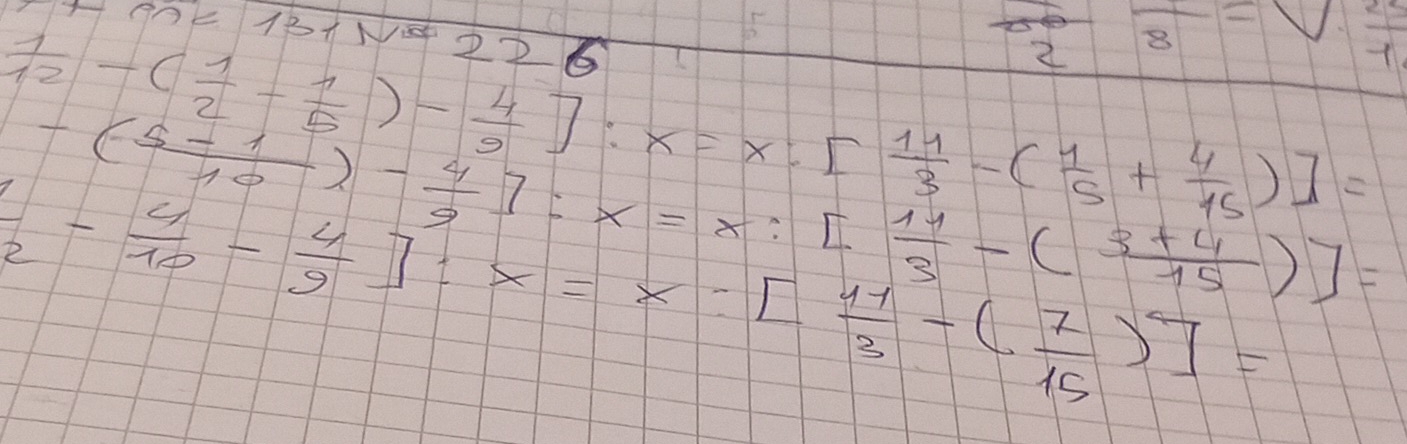 131 N° 226
2 8 =
1/12 - (1/2 - 1/5) - 4/9] : x = x : [11/3 - (1/5 + 4/15)] =
- (5 - 1/10) - 4/9] : x = x : [11/3 - (3 + 4/15)] =
- 4/10 - 4/9] : x = x : [11/3 - (7/15)] =